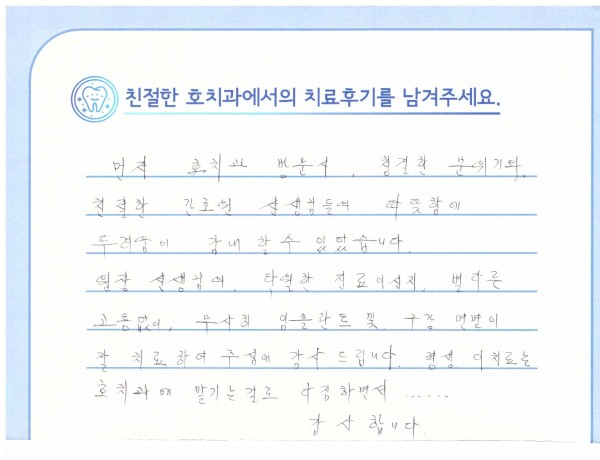 친절한 호치과에서의 치료후기를 남겨주세요.
먼저 호치과 방문시, 청결한 분위기와
친절한 간호원 선생님들의 따뜻함에
두려움이 감내 할 수 있었습니다.
원장 선생님의, 탁월한 진료이십지, 별다른
고통없이, 무사히 임플란트 및 구강 면면이
잘 치료하여 주심에 감사 드립니다. 평생 이치료는
호치과에 맡기는걸로 다짐하면서 ......
감사합니다.